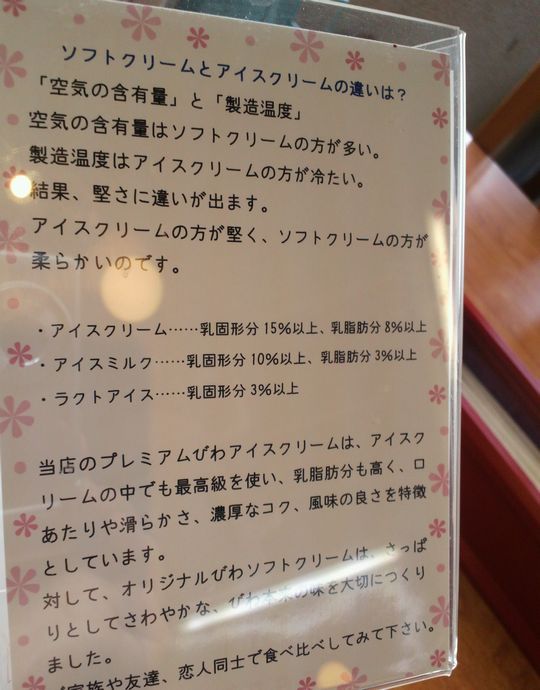 ソフトクリームとアイスクリームの違いは？
「空気の含有量」と「製造温度」
空気の含有量はソフトクリームの方が多い。
製造温度はアイスクリームの方が冷たい。
結果、堅さに違いが出ます。
アイスクリームの方が堅く、ソフトクリームの方が
柔らかいのです。
・アイスクリーム……乳固形分15％以上、乳脂肪分8％以上
・アイスミルク……乳固形分10％以上、乳脂肪分3％以上
・ラクトアイス……乳固形分3％以上
当店のプレミアムびわアイスクリームは、アイスク
リームの中でも最高級を使い、乳脂肪分も高く、口
あたりや滑らかさ、濃厚なコク、風味の良さを特徴
としています。
対して、オリジナルびわソフトクリームは、さっぱ
りとしてさわやかな、びわ本来の味を大切につくり
ました。
ご家族や友達、恋人同士で食べ比べしてみて下さい。